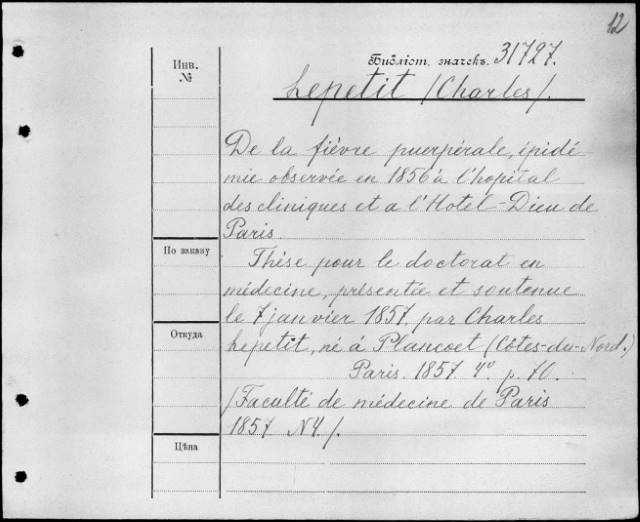 12
Инв.
№
Библіот. значекъ. 31727.
Lepetit (Charles).
De la fièvre puerpérale, épidé
mie observée en 1856 à l'hopital
des cliniques et a l'Hotel-Dieu de
Paris.
По заказу
Thèse pour le doctorat en
médecine, présentée et soutenue
le 7 janvier 1857, par Charles
Откуда
Lepetit, né á Plancoet (Côtes-du-Nord.)
Paris. 1857. 4º. p. 70.
(Faculté de médecine de Paris
1857. N4.).
Цѣна